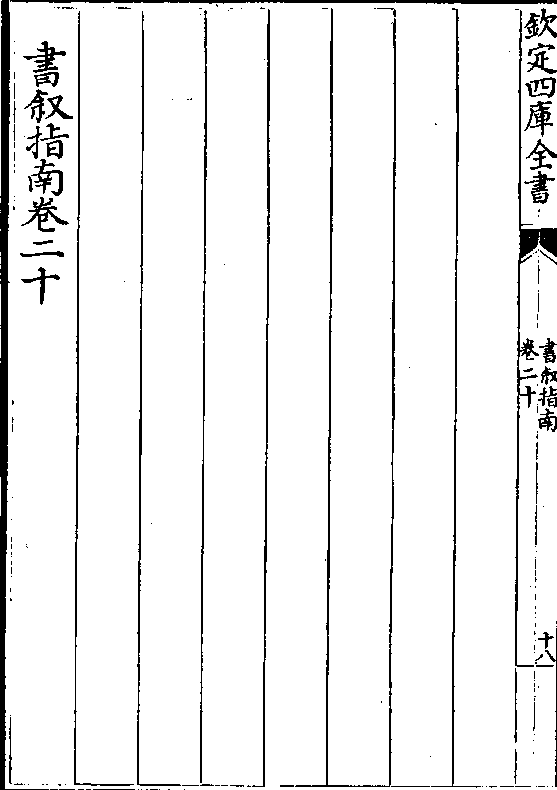 欽定四庫全書
書叙指南
卷二十
十八
書叙指南卷二十